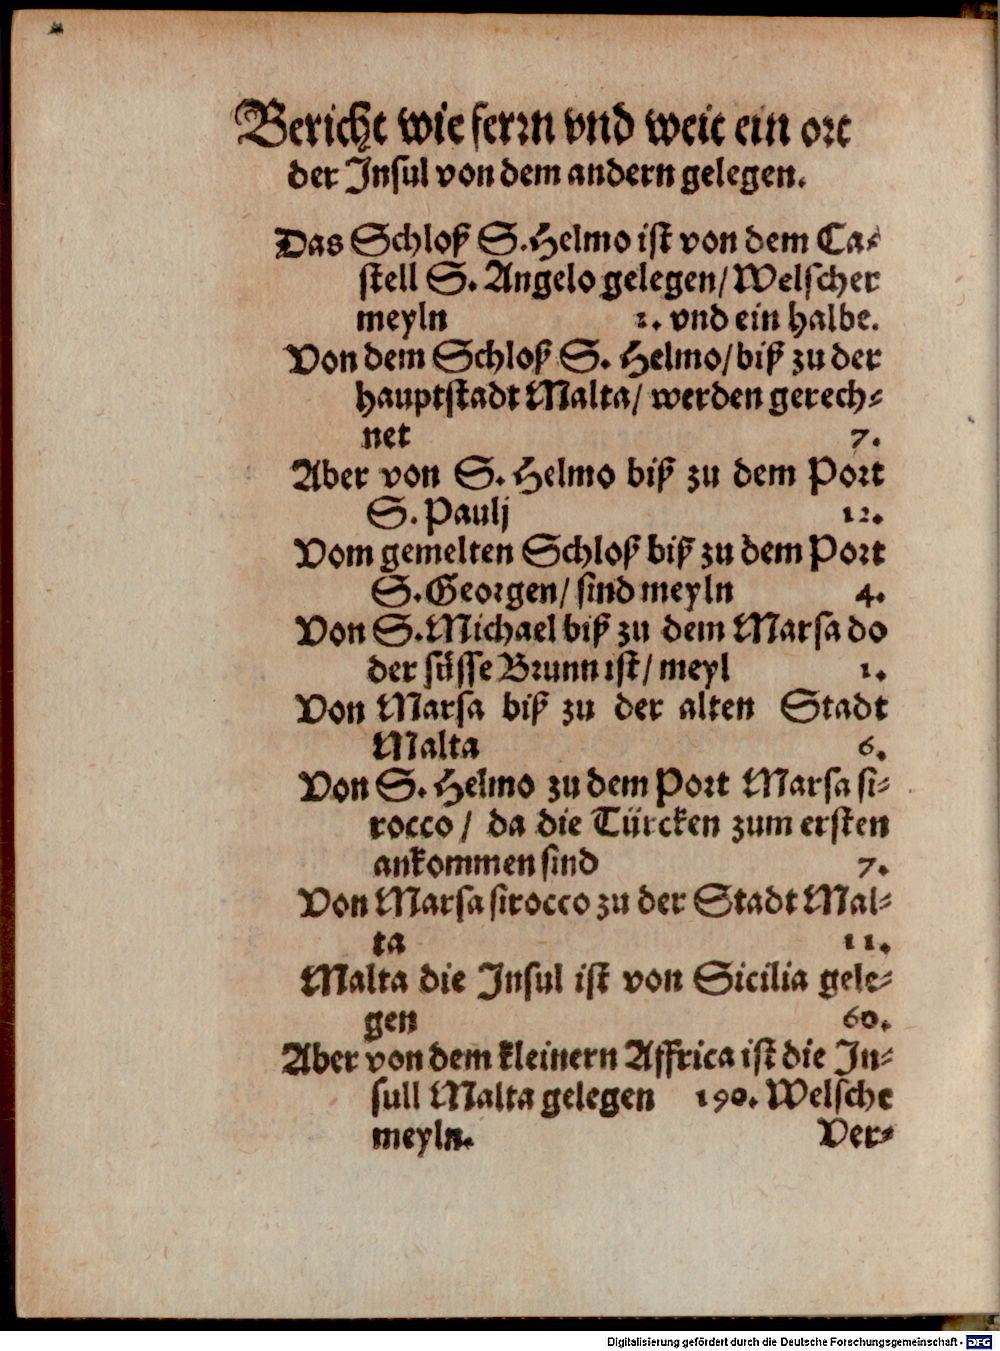 Bericht wie ferrn vnd weit ein ort
der Insul von dem andern gelegen.
Das Schloß S. Helmo ist von dem Ca-
stell S. Angelo gelegen/ Welscher
meyln 1. vnd ein halbe.
Von dem Schloß S. Helmo/ biß zu der
hauptstadt Malta/ werden gerech-
net 7.
Aber von S. Helmo biß zu dem Port
S. Paulj 12.
Vom gemelten Schloß biß zu dem Port
S. Georgen/ sind meyln 4.
Von S. Michael biß zu dem Marsa do
der süsse Brunn ist/ meyl 1.
Von Marsa biß zu der alten Stadt
Malta 6.
Von S. Helmo zu dem Port Marsa si-
rocco/ da die Türcken zum ersten
ankommen sind 7.
Von Marsa sirocco zu der Stadt Mal-
ta 11.
Malta die Insul ist von Sicilia gele-
gen 60.
Aber von dem kleinern Affrica ist die In-
sull Malta gelegen 190. Welsche
meyln. Ver-
Digitalisierung gefördert durch die Deutsche Forschungsgemeinschaft - DFG